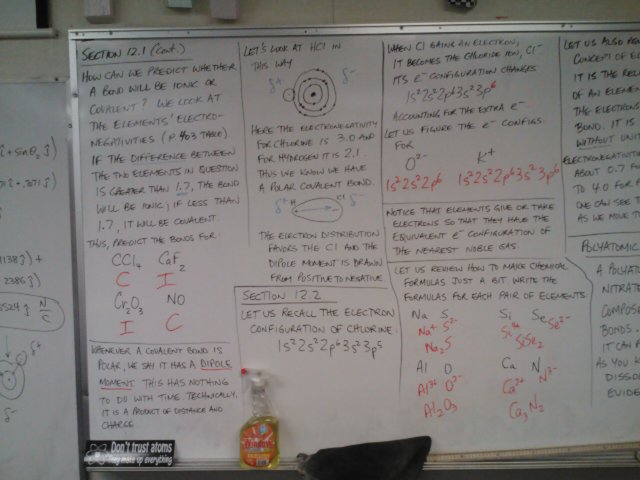 SECTION 12.1 (CONT.)
HOW CAN WE PREDICT WHETHER
A BOND WILL BE IONIC OR
COVALENT? WE LOOK AT
THE ELEMENTS' ELECTRO-
NEGATIVITIES (P. 403 TABLE)
IF THE DIFFERENCE BETWEEN
THE TWO ELEMENTS IN QUESTION
IS GREATER THAN 1.7, THE BOND
WILL BE IONIC; IF LESS THAN
1.7, IT WILL BE COVALENT.
THUS, PREDICT THE BONDS FOR:
CCl₄ CaF₂
C I
Cr₂O₃ NO
I C
WHENEVER A COVALENT BOND IS
POLAR, WE SAY IT HAS A DIPOLE
MOMENT. THIS HAS NOTHING
TO DO WITH TIME. TECHNICALLY,
IT IS A PRODUCT OF DISTANCE AND
CHARGE.
Don't trust atoms
They make up everything
LET'S LOOK AT HCl IN
THIS WAY
δ⁺ δ⁻
HERE THE ELECTRONEGATIVITY
FOR CHLORINE IS 3.0 AND
FOR HYDROGEN IT IS 2.1.
THUS WE KNOW WE HAVE
A POLAR COVALENT BOND.
δ⁺ H Cl δ⁻
THE ELECTRON DISTRIBUTION
FAVORS THE Cl AND THE
DIPOLE MOMENT IS DRAWN
FROM POSITIVE TO NEGATIVE
SECTION 12.2
LET US RECALL THE ELECTRON
CONFIGURATION OF CHLORINE.
1s²2s²2p⁶3s²3p⁵
WHEN Cl GAINS AN ELECTRON,
IT BECOMES THE CHLORIDE ION, Cl⁻
ITS e⁻ CONFIGURATION CHANGES
1s²2s²2p⁶3s²3p⁶
ACCOUNTING FOR THE EXTRA e⁻
LET US FIGURE THE e⁻ CONFIGS.
FOR
O²⁻ K⁺
1s²2s²2p⁶ 1s²2s²2p⁶3s²3p⁶
NOTICE THAT ELEMENTS GIVE OR TAKE
ELECTRONS SO THAT THEY HAVE THE
EQUIVALENT e⁻ CONFIGURATION OF
THE NEAREST NOBLE GAS.
LET US REVIEW HOW TO MAKE CHEMICAL
FORMULAS JUST A BIT. WRITE THE
FORMULAS FOR EACH PAIR OF ELEMENTS:
Na S Si Se
Na⁺ S²⁻ Si⁴⁺ Se²⁻
Na₂S SiSe₂
Al O Ca N
Al³⁺ O²⁻ Ca²⁺ N³⁻
Al₂O₃ Ca₃N₂
LET US ALSO
CONCEPT OF
IT IS THE
OF AN ELEMEN
THE ELECTRON
BOND. IT IS
WITHOUT UNIT
ELECTRONEGATIVITIES
ABOUT 0.7 FO
TO 4.0 FOR
ONE CAN SEE T
AS WE MOVE
POLYATOMIC
A POLYAT
NITRATE
COMPOSE
BONDS.
IT CAN
AS YOU
DISSO
EVIDE